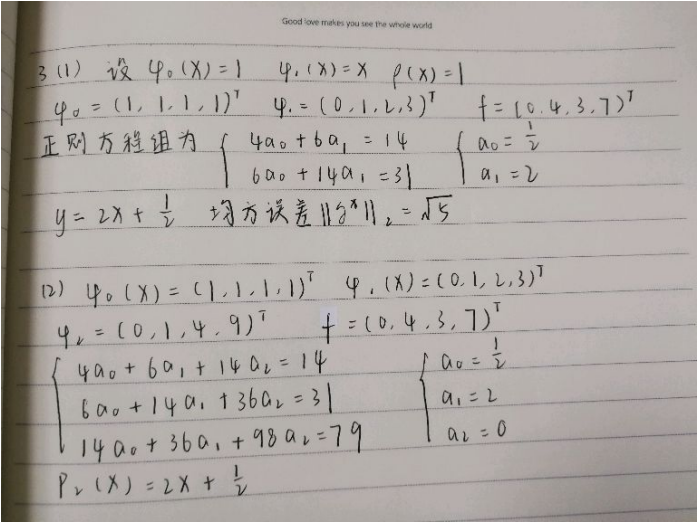 Good love makes you see the whole world
3 (1) 设 φ₀(x)=1 φ₁(x)=x ρ(x)=1
φ₀=(1,1,1,1)ᵀ φ₁=(0,1,2,3)ᵀ f=(0,4,3,7)ᵀ
正则方程组为 { 4a₀+6a₁=14 { a₀=1/2
6a₀+14a₁=31 a₁=2
y=2x+1/2 均方误差||δ*||₂=√5
(2) φ₀(x)=(1,1,1,1)ᵀ φ₁(x)=(0,1,2,3)ᵀ
φ₂=(0,1,4,9)ᵀ f=(0,4,3,7)ᵀ
{ 4a₀+6a₁+14a₂=14 { a₀=1/2
6a₀+14a₁+36a₂=31 a₁=2
14a₀+36a₁+98a₂=79 a₂=0
P₂(x)=2x+1/2